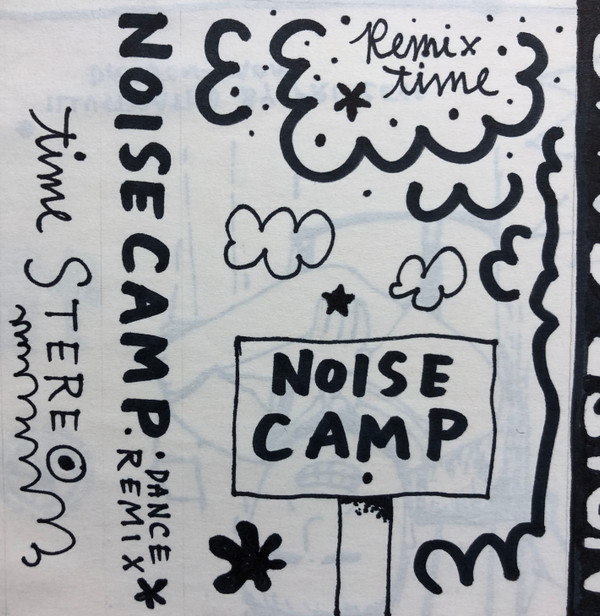 Remix
time
NOISE
CAMP
NOISE CAMP. DANCE
REMIX
time STEREO